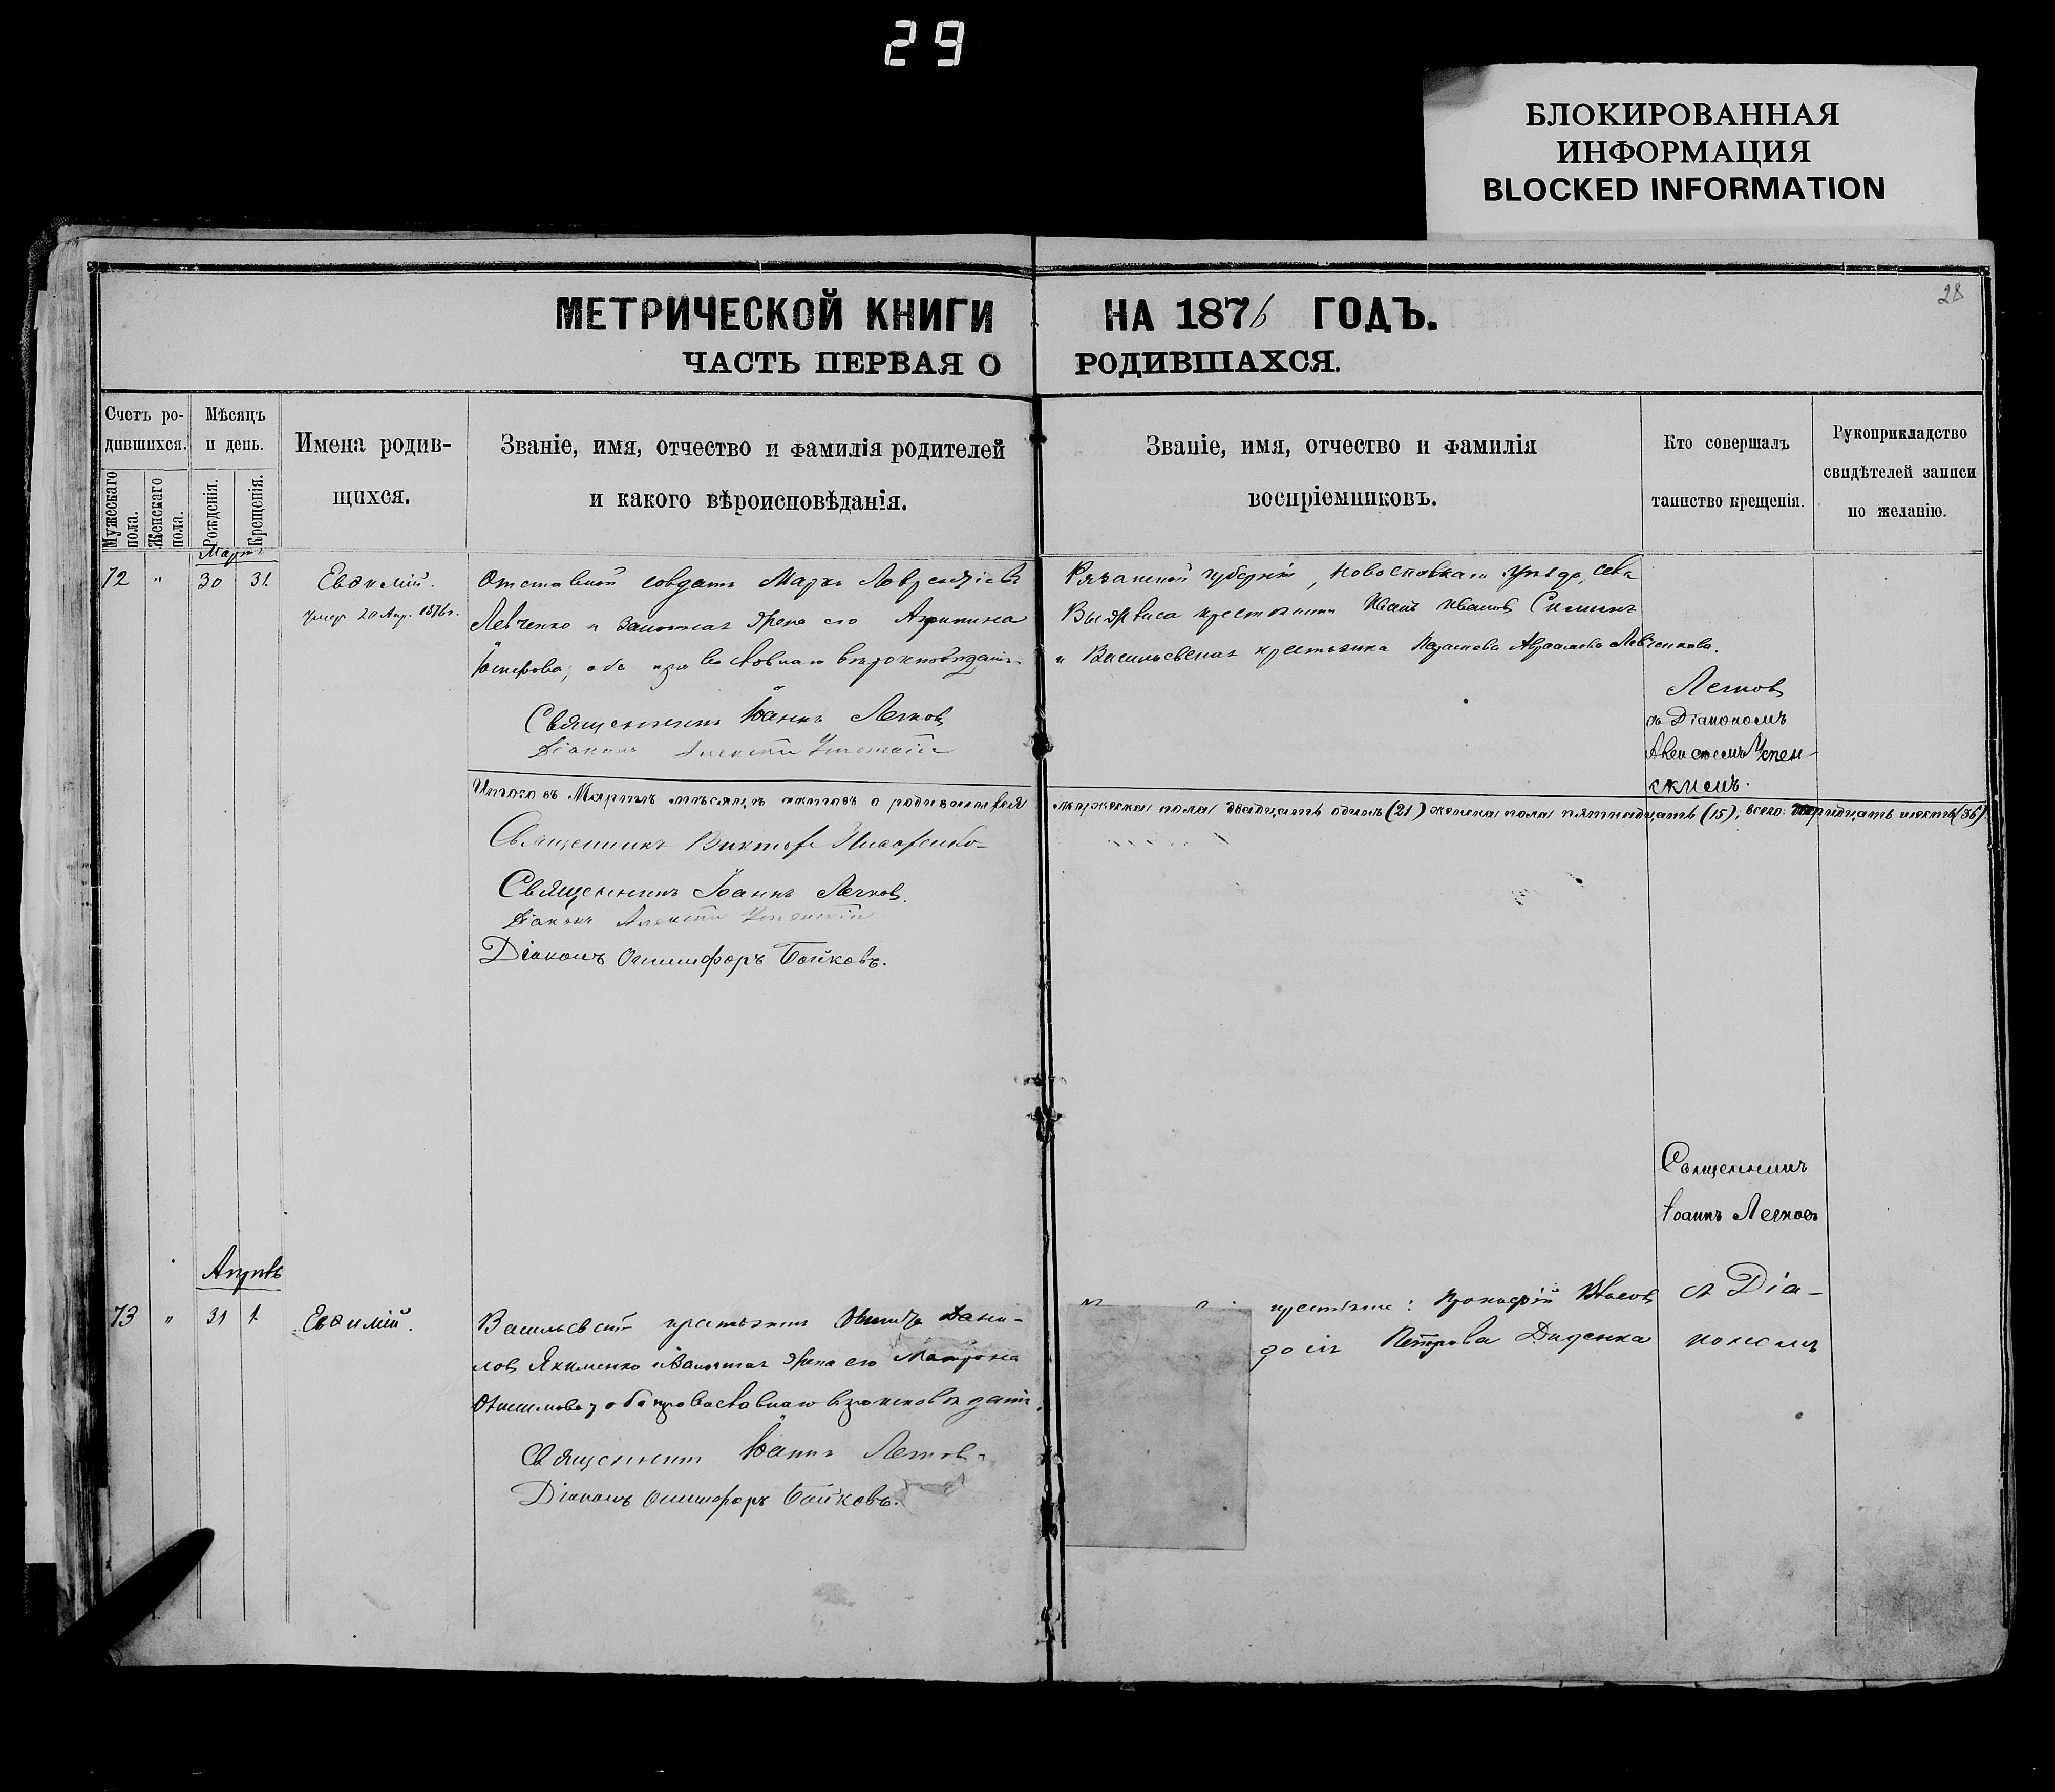 29
БЛОКИРОВАННАЯ
ИНФОРМАЦИЯ
BLOCKED INFORMATION
28
МЕТРИЧЕСКОЙ КНИГИ НА 1876 ГОДЪ.
ЧАСТЬ ПЕРВАЯ О РОДИВШАХСЯ.
Счетъ ро-
дившихся.
Мужескаго пола.
Женскаго пола.
Мѣсяцъ
и день.
Рожденія.
Крещенія.
Имена родив-
щихся.
Званіе, имя, отчество и фамилія родителей
и какого вѣроисповѣданія.
Званіе, имя, отчество и фамилія
воспріемниковъ.
Кто совершалъ
таинство крещенія.
Рукоприкладство
свидѣтелей записи
по желанію.
Мартъ
72 " 30 31
Евѳимій.
умер. 20 Апр. 1876 г.
Отставной солдатъ Маркъ Лаврентіевъ
Левченко и законная жена его
Іосифова, оба православнаго вѣроисповѣданія.
Священникъ Іоаннъ Легковъ
Діаконъ Алексѣй Успенскій
Рязанской губерніи, уѣзда, села
крестьянинъ Иванъ Ивановъ
и Васильевская крестьянка Левченкова.
Легковъ
съ Діакономъ
Алексѣемъ Успен-
скимъ.
Итого въ Мартѣ мѣсяцѣ актовъ о родившихся мужеска пола двадцать одинъ (21) женска пола пятнадцать (15), всего: тридцать шесть (36).
Священникъ Викторъ
Священникъ Іоаннъ Легковъ.
Діаконъ Алексѣй Успенскій
Діаконъ Онисифоръ Бойковъ.
Священникъ
Іоаннъ Легковъ
съ Діа-
кономъ
Апрѣль
73 " 31 1
Евѳимій.
Васильевскій крестьянинъ Дани-
ловъ Якименко и законная жена его Матрона
Онисимова, оба православнаго вѣроисповѣданія.
Священникъ Іоаннъ Легковъ
Діаконъ Онисифоръ Бойковъ.
крестьяне: Прокофій Власовъ
Петрова Диденка